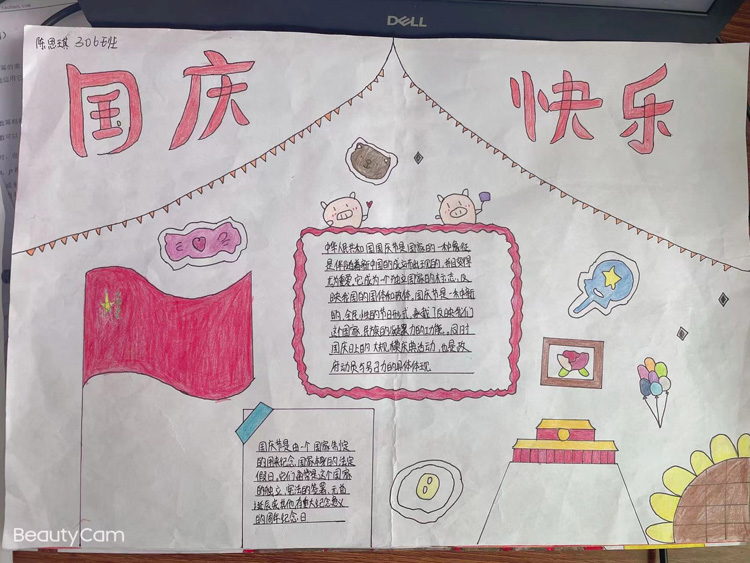 DELL
陈思琪 306班
国庆 快乐
中华人民共和国国庆节是国家的一种象征
是伴随着新中国的成立而出现的,并且变得
尤为重要,它成为一个独立国家的标志,反
映我国的国体和政体,国庆节是一种新
的、全民性的节日形式,承载了反映我们
这个国家、民族的凝聚力的功能。同时
国庆日上的大规模庆典活动,也是政
府动员与号召力的具体体现
国庆节是由一个国家制定
的用来纪念国家本身的法定
假日,它们通常是这个国家
的独立、宪法的签署、元首
诞辰或其他有重大纪念意义
的周年纪念日
BeautyCam